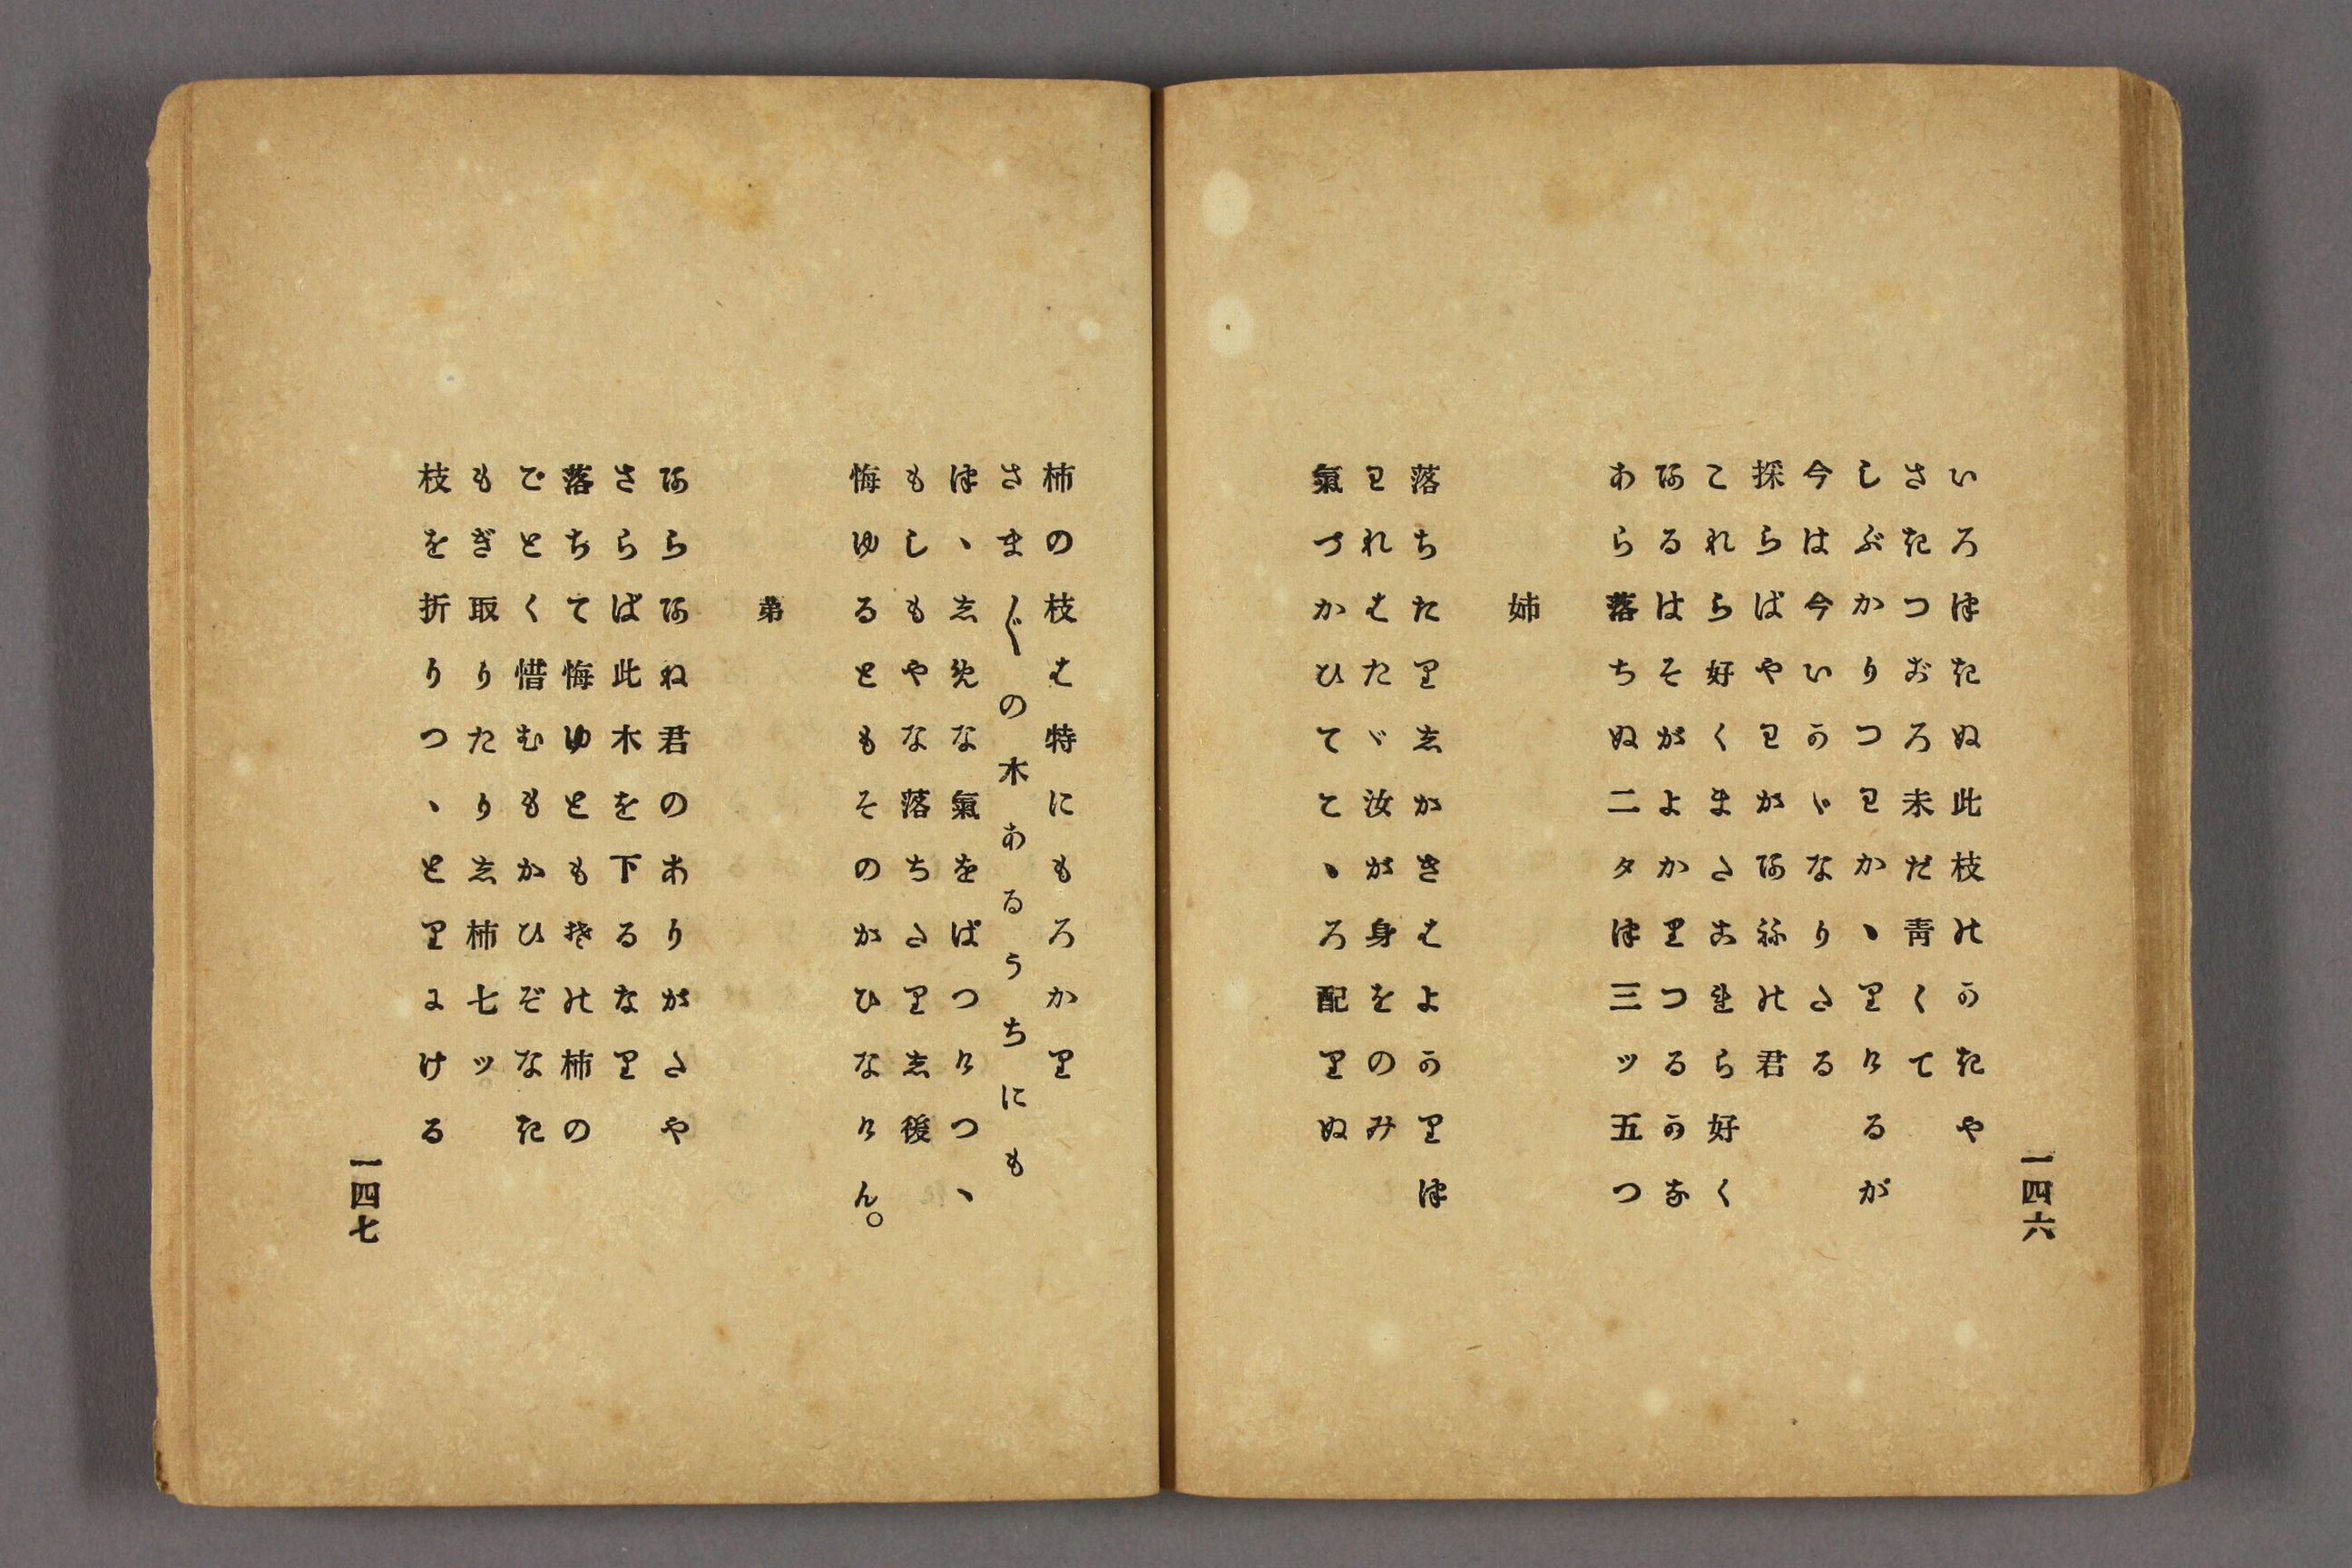 一四六
いろつきぬ此枝のかきや
さきつころ未だ青くて
しぶかりつわかゝりけるが
今は今いかゞなりたる
採らばやわがあねの君
これら好くまたこれら好く
あるはそがよかりつるかな
あら落ちぬ二タつ三ツ五つ
姉
落ちたりしかきはよかりつ
われはたゞ汝が身をのみ
氣づかひてこゝろ配りぬ
柿の枝は特にもろかり
さま〴〵の木あるうちにも
つゝしめな氣をばつけつゝ
もしもやな落ちたりし後
悔ゆるともそのかひなけん。
弟
あらあね君のありがたや
さらば此木を下るなり
落ちて悔ゆともその柿の
ごとく惜むもかひぞなき
もぎ取りたりし柿七ツ
枝を折りつゝとりにける
一四七